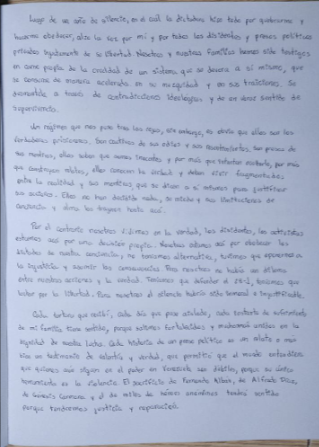 Luego de un año de silencio, en el cual la dictadura hizo todo por quebrarnos y
hacernos obedecer, alzo la voz por mí y por todos los disidentes y presos políticos
privados injustamente de su libertad. Nosotros y nuestras familias hemos sido testigos
en carne propia de la crueldad de un sistema que se devora a sí mismo, que
se consume de manera acelerada en su mezquindad y en sus traiciones. Se
a través de contradicciones ideológicas y de un único sentido de
supervivencia.
Un régimen que nos puso tras las rejas, sin embargo, es obvio que ellos son los
verdaderos prisioneros. Son cautivos de sus odios y sus resentimientos. Son presos de
sus mentiras, ellos saben que somos inocentes y por más que intenten ocultarlo, por más
que construyan relatos, ellos conocen la verdad y deben vivir fragmentados
entre la realidad y sus mentiras, que se dicen a sí mismos para justificar
sus acciones. Ellos no han decidido nada, su miedo y sus
conciencia y alma los trajeron hasta aquí.
Por el contrario nosotros vivimos en la verdad, los disidentes, los activistas
estamos aquí por una decisión propia. Nosotros sabemos que por obedecer los
dictados de nuestra conciencia, no teníamos alternativa, tuvimos que oponernos a
la injusticia y asumir las consecuencias. Para nosotros no había un dilema
entre nuestras acciones y la verdad. Teníamos que defender el 28-J, teníamos que
luchar por la libertad. Para nosotros el silencio habría sido inmoral e imperdonable.
Cada tortura que recibí, cada día que pasé aislado, cada instante de sufrimiento
de mi familia tiene sentido, porque salimos fortalecidos y muchos más unidos en la
equidad de nuestra lucha. Cada historia de un preso político es un relato o más
bien un testimonio de valentía y verdad, que permitió que el mundo entendiera
que quienes aún siguen en el poder en Venezuela son débiles, porque su única
herramienta es la violencia. El sacrificio de Fernando Albán, de Alfredo Díaz,
de Genaro Carreño y el de miles de héroes anónimos tendrá sentido
porque tendremos justicia y reparación.